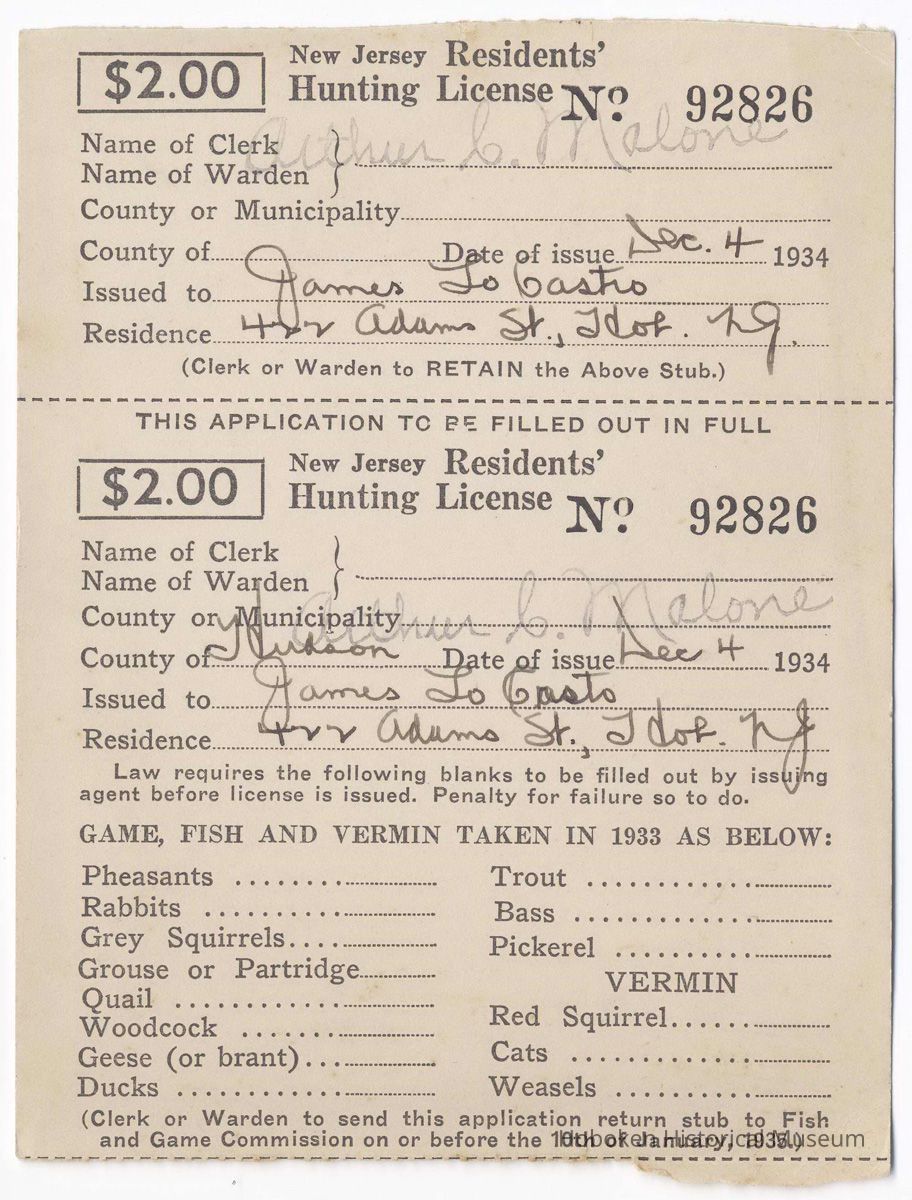 $2.00
New Jersey Residents'
Hunting License No. 92826
Arthur C. Malone
Name of Clerk
Name of Warden
County or Municipality
County of Date of issue Dec. 4 1934
Issued to James Lo Castro
Residence 422 Adams St., Hob. NJ.
(Clerk or Warden to RETAIN the Above Stub.)
THIS APPLICATION TO BE FILLED OUT IN FULL
$2.00
New Jersey Residents'
Hunting License No. 92826
Name of Clerk
Name of Warden
Arthur C. Malone
County or Municipality
County of Hudson Date of issue Dec 4 1934
Issued to James Lo Casto
Residence 422 Adams St., Hob. NJ
Law requires the following blanks to be filled out by issuing
agent before license is issued. Penalty for failure so to do.
GAME, FISH AND VERMIN TAKEN IN 1933 AS BELOW:
Pheasants
Rabbits
Grey Squirrels
Grouse or Partridge
Quail
Woodcock
Geese (or brant)
Ducks
Trout
Bass
Pickerel
VERMIN
Red Squirrel
Cats
Weasels
(Clerk or Warden to send this application return stub to Fish
and Game Commission on or before the 10th of January, 1935.)
Hoboken Historical Museum